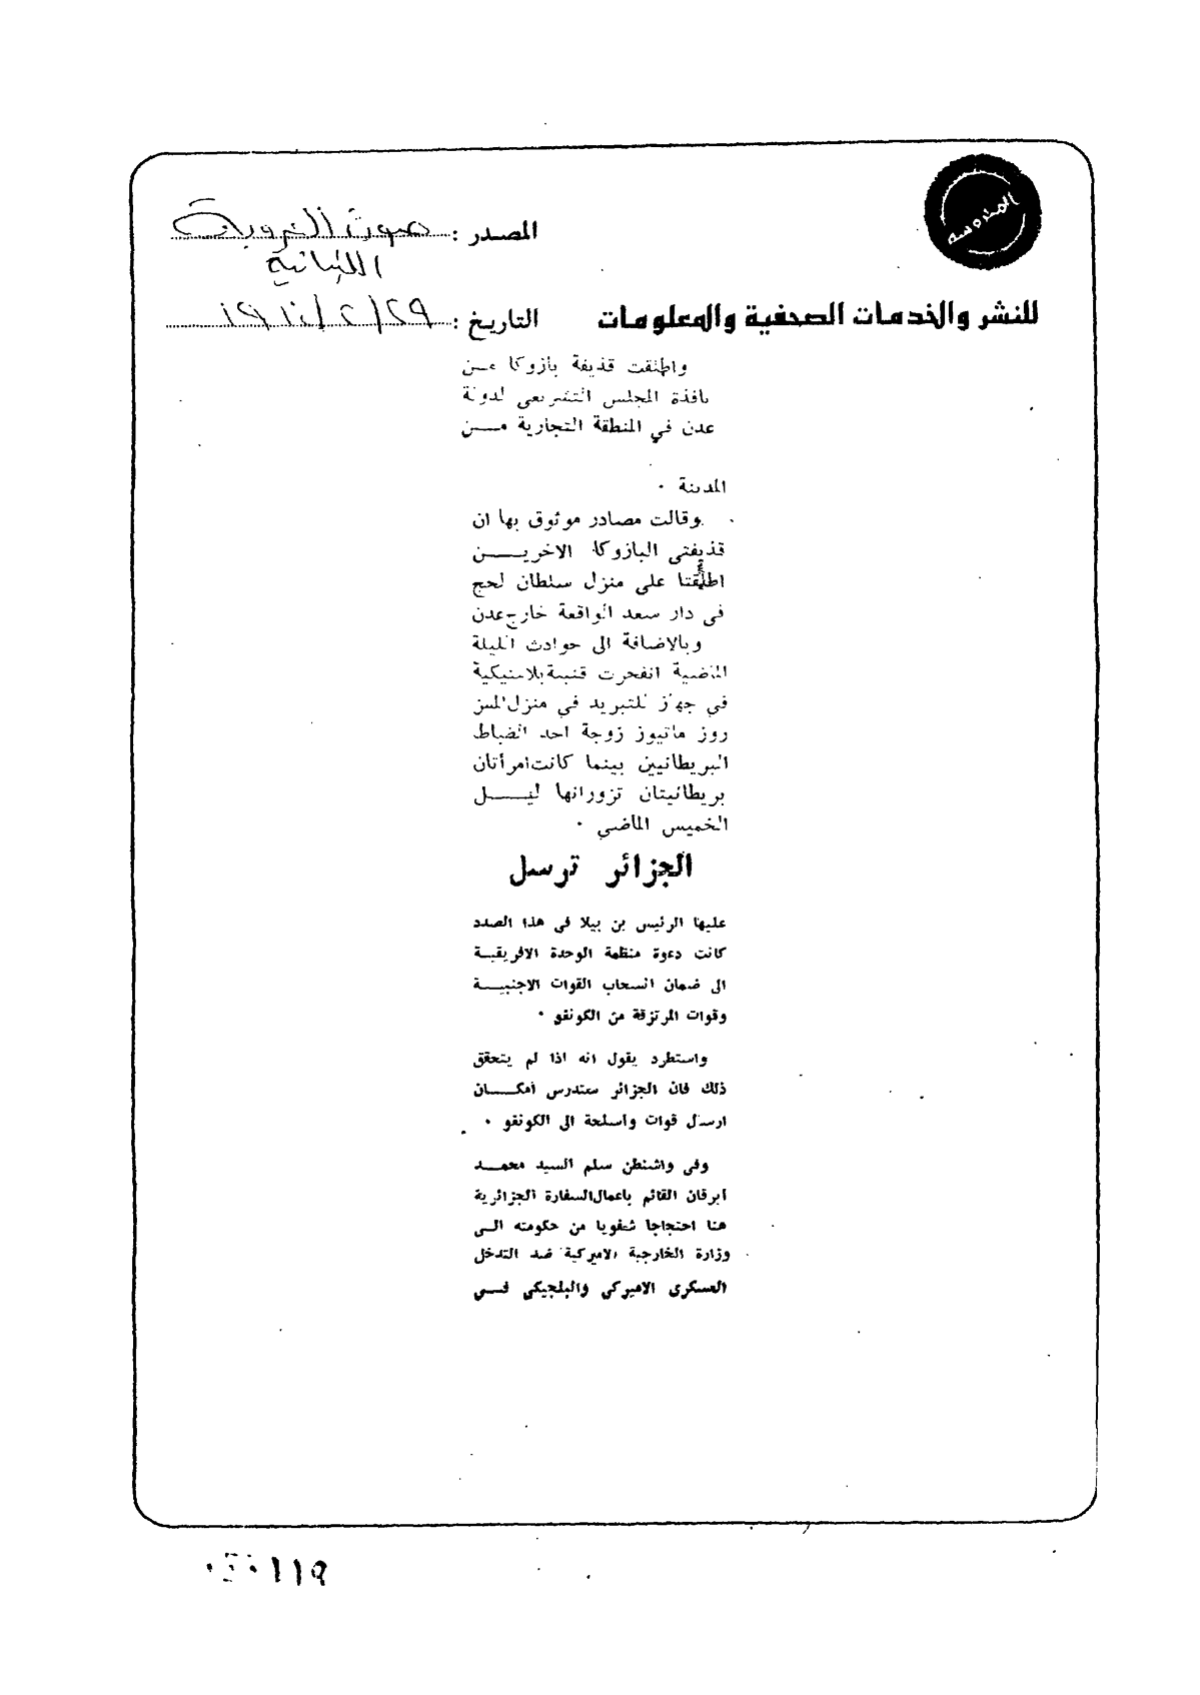 المحروسة
المصدر : صوت العروبة
اللبنانية
للنشر والخدمات الصحفية والمعلومات
التاريخ :
واطلقت قذيفة بازوكا من
نافذة المجلس التشريعى لدولة
عدن في المنطقة التجارية مـــن
المدينة ٠
وقالت مصادر موثوق بها ان
قذيفتى البازوكا الاخريـــــن
اطلقتا على منزل سلطان لحج
في دار سعد الواقعة خارج عدن
وبالاضافة الى حوادث الليلة
الماضية انفجرت قنبلة بلاستيكية
في جهاز للتبريد في منزل المسز
روز ماتيوز زوجة احد الضباط
البريطانيين بينما كانت امرأتان
بريطانيتان تزورانها ليـــــل
الخميس الماضي ٠
الجزائر ترسل
عليها الرئيس بن بيلا فى هذا الصدد
كانت دعوة منظمة الوحدة الافريقيــة
الى ضمان انسحاب القوات الاجنبيـــة
وقوات المرتزقة من الكونغو ٠
واستطرد يقول انه اذا لم يتحقق
ذلك فان الجزائر ستدرس امكـــــان
ارسال قوات واسلحة الى الكونغو ٠
وفى واشنطن سلم السيد محمـــد
ابرقان القائم باعمال السفارة الجزائرية
هنا احتجاجا شفويا من حكومته الــى
وزارة الخارجية الاميركية ضد التدخل
العسكرى الاميركى والبلجيكى فـــي